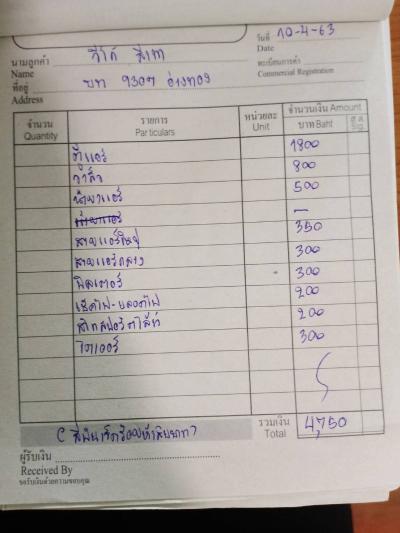 วันที่ 10-4-63
Date
นามลูกค้า วีโก้ สีเทา
Name
ทะเบียนการค้า
Commercial Registration
ที่อยู่ บท 9307 อ่างทอง
Address
จำนวน รายการ หน่วยละ จำนวนเงิน Amount
Quantity Particulars Unit บาท Baht ส.ต. Stg.
ตู้แอร์ 1800
วาล์ว 800
น้ำยาแอร์ 500
—
สายแอร์ 350
สายแอร์กลาง 300
300
เช็คไฟ-หลอดไฟ 200
200
ไดเออร์ 300
(สี่พันเจ็ดร้อยห้าสิบบาท) รวมเงิน 4,750
Total
ผู้รับเงิน
Received By
ขอรับเงินด้วยความขอบคุณ